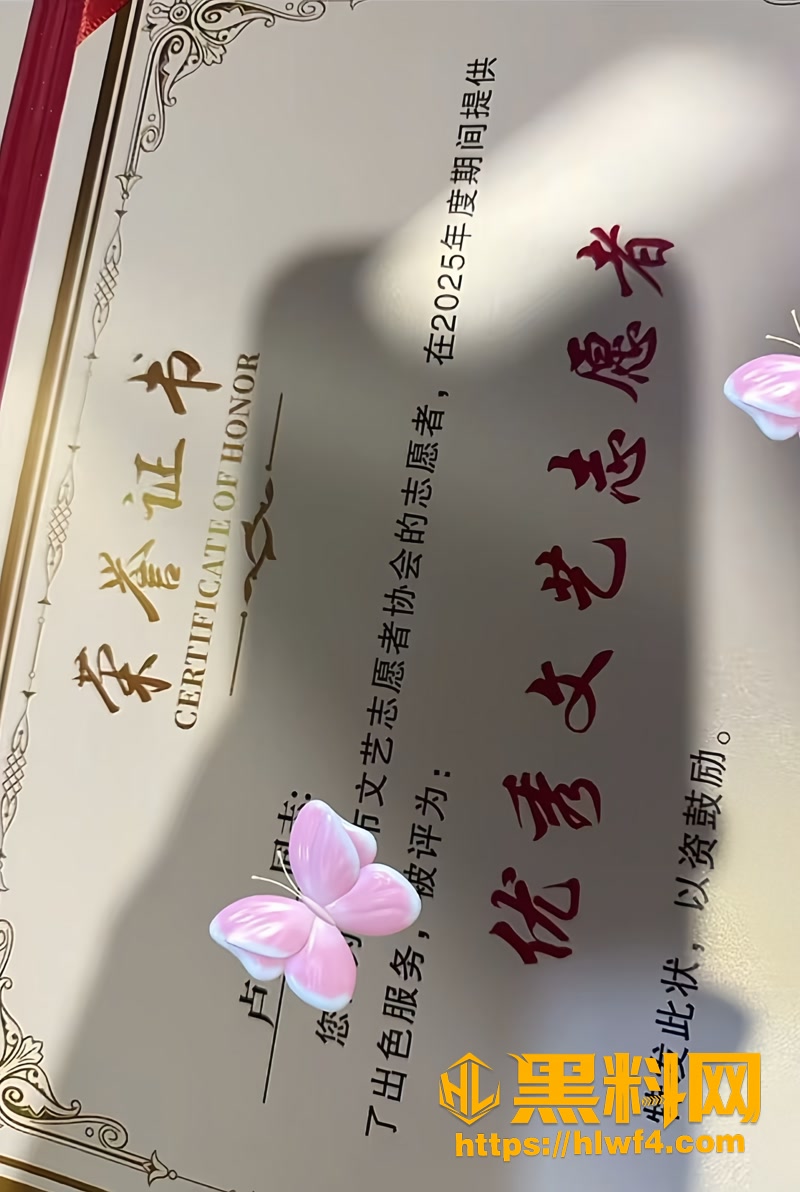 荣誉证书
CERTIFICATE OF HONOR
卢 同志:
您 市文艺志愿者协会的志愿者，在2025年度期间提供
了出色服务，被评为:
优秀文艺志愿者
特发此状，以资鼓励。
HL 黑料网
https://hlwf4.com